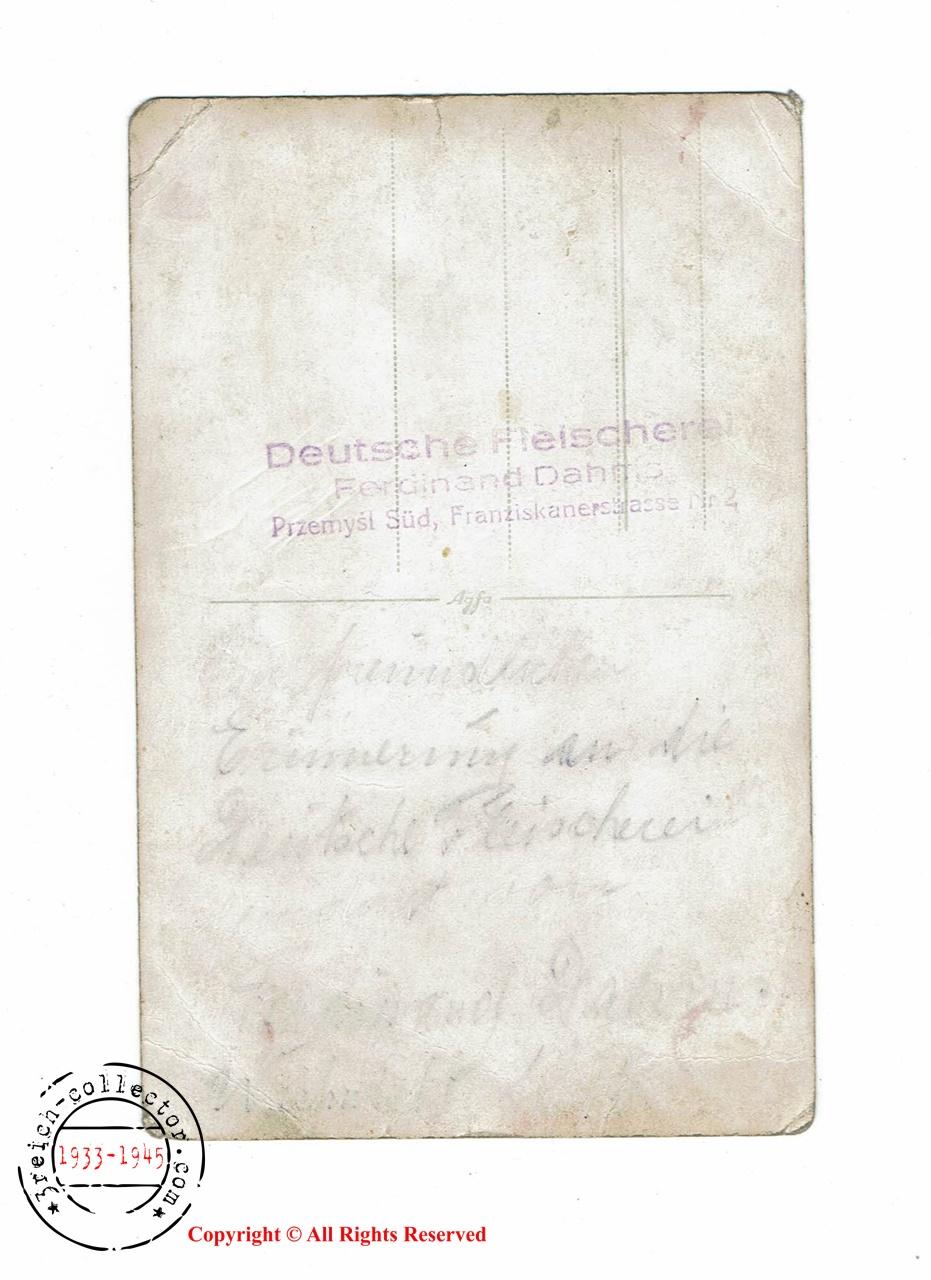 Deutsche Fleischerei
Ferdinand Dahms
Przemyśl Süd, Franziskanerstrasse Nr. 2
Agfa
freundliche
Erinnerung an die
Deutsche Fleischerei
von
Ferdinand
3reich-collector.com
1933-1945
Copyright © All Rights Reserved